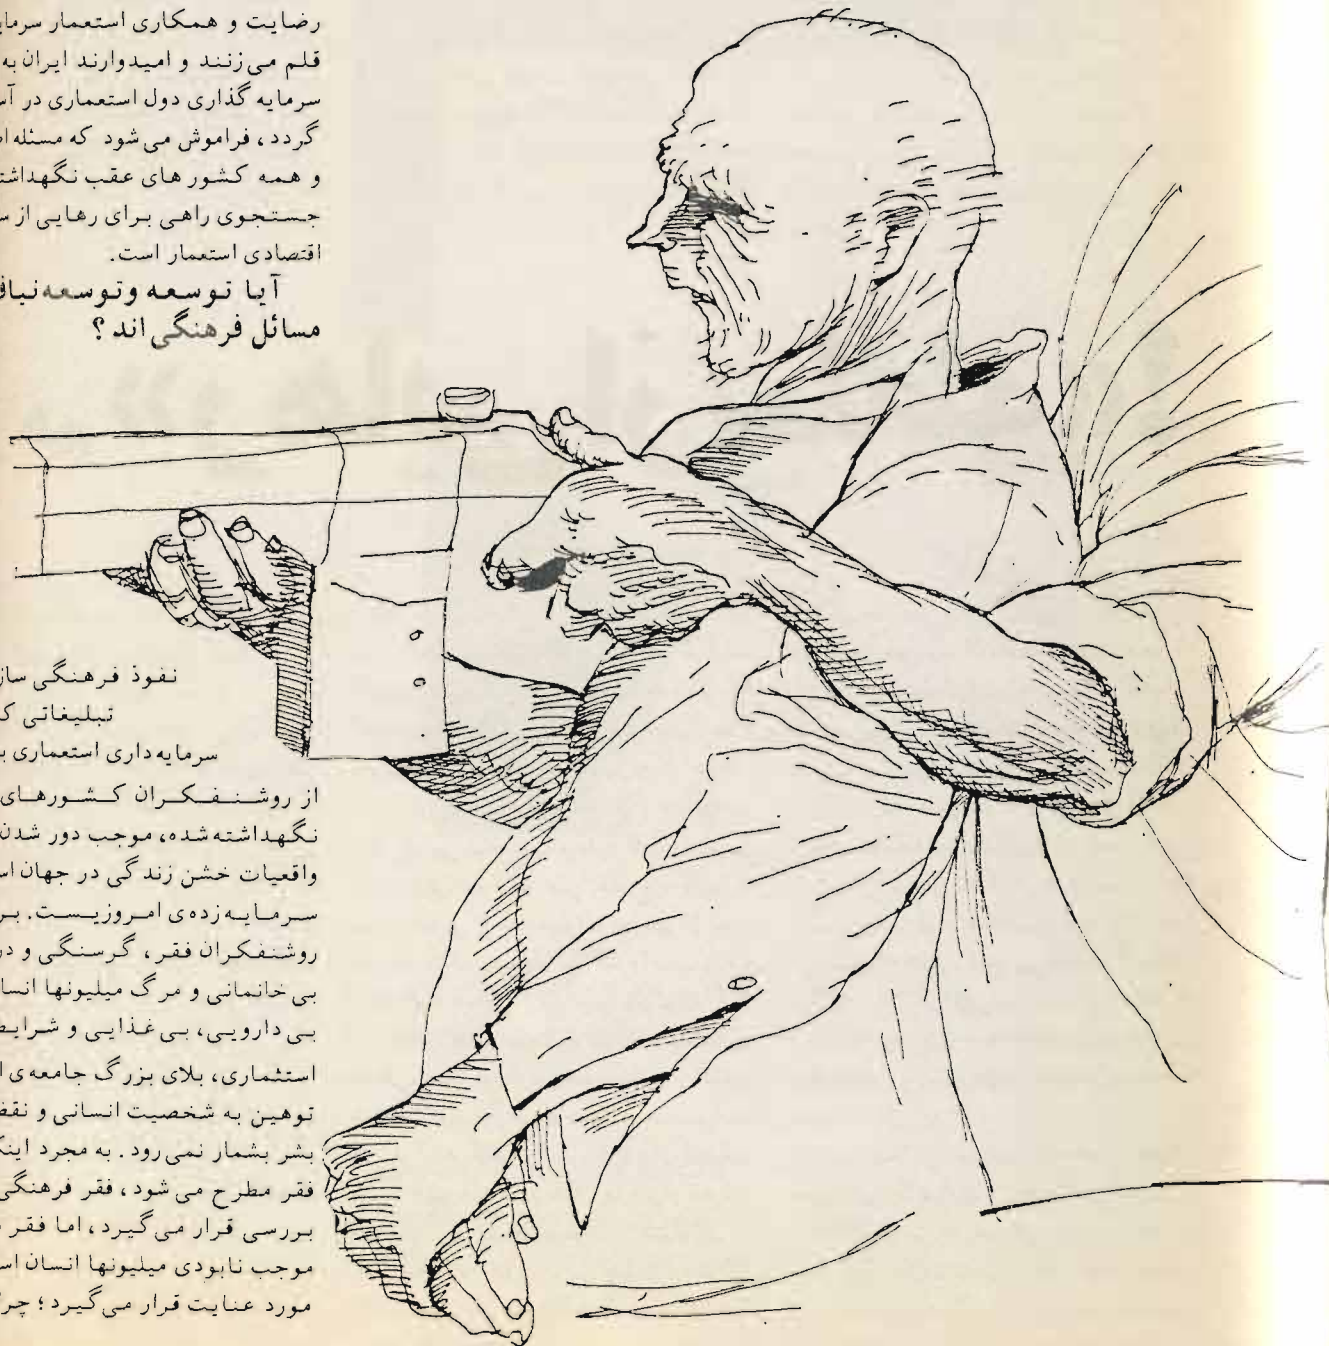 رضایت و همکاری استعمار سرمایه
قلم می‌زنند و امیدوارند ایران به
سرمایه گذاری دول استعماری در آس
گردد، فراموش می‌شود که مسئله ا
و همه کشور های عقب نگهداشت
جستجوی راهی برای رهایی از س
اقتصادی استعمار است.
آیا توسعه وتوسعه‌نیاف
مسائل فرهنگی‌اند ؟
نفوذ فرهنگی ساز
تبلیغاتی ک
سرمایه‌داری استعماری ب
از روشنفکران کشورهای
نگهداشته‌شده، موجب دور شدن
واقعیات خشن زندگی در جهان اس
سرمایه‌زده‌ی امروزیست. بر
روشنفکران فقر، گرسنگی و در
بی‌خانمانی و مرگ میلیونها انسا
بی‌دارویی، بی‌غذایی و شرایط
استثماری، بلای بزرگ جامعه‌ی ا
توهین به شخصیت انسانی و نقض
بشر بشمار نمی‌رود. به مجرد اینک
فقر مطرح می‌شود، فقر فرهنگی
بررسی قرار می‌گیرد، اما فقر
موجب نابودی میلیونها انسان اس
مورد عنایت قرار می‌گیرد؛ چر